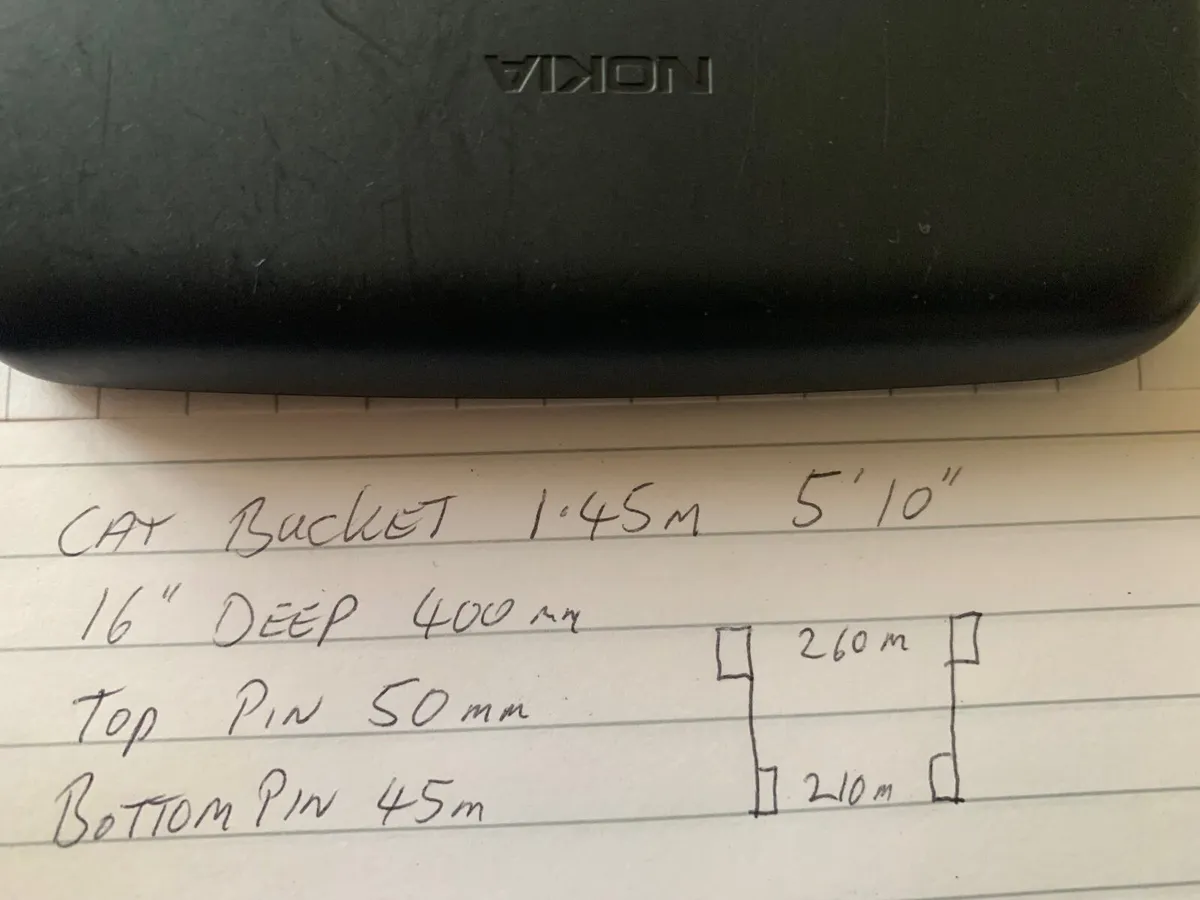 NOKIA
CAT BUCKET 1.45m 5'10"
16" DEEP 400mm
260m
TOP PIN 50mm
BOTTOM PIN 45m
210m